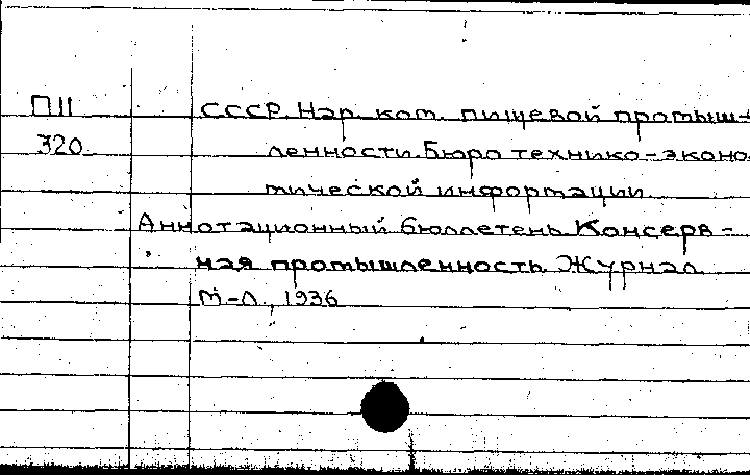 П11 СССР. Нар. ком. пищевой промыш-
320 ленности. Бюро технико-эконо
мической информации
Аннотационный бюллетень Консерв-
ная промышленность. Журнал
М-Л., 1936